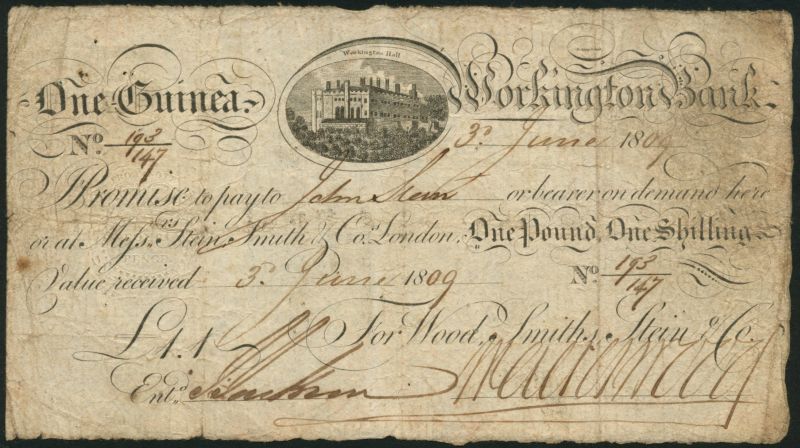 Workington Hall
One Guinea. Workington Bank.
No. 193/147 3d June 1809
I Promise to pay to John Stein or bearer on demand here
or at Messrs. Stein, Smith & Co. London, One Pound, One Shilling
Value received 3d June 1809 No. 193/147
£1.1 For Wood, Smiths, Stein & Co.
Entd.